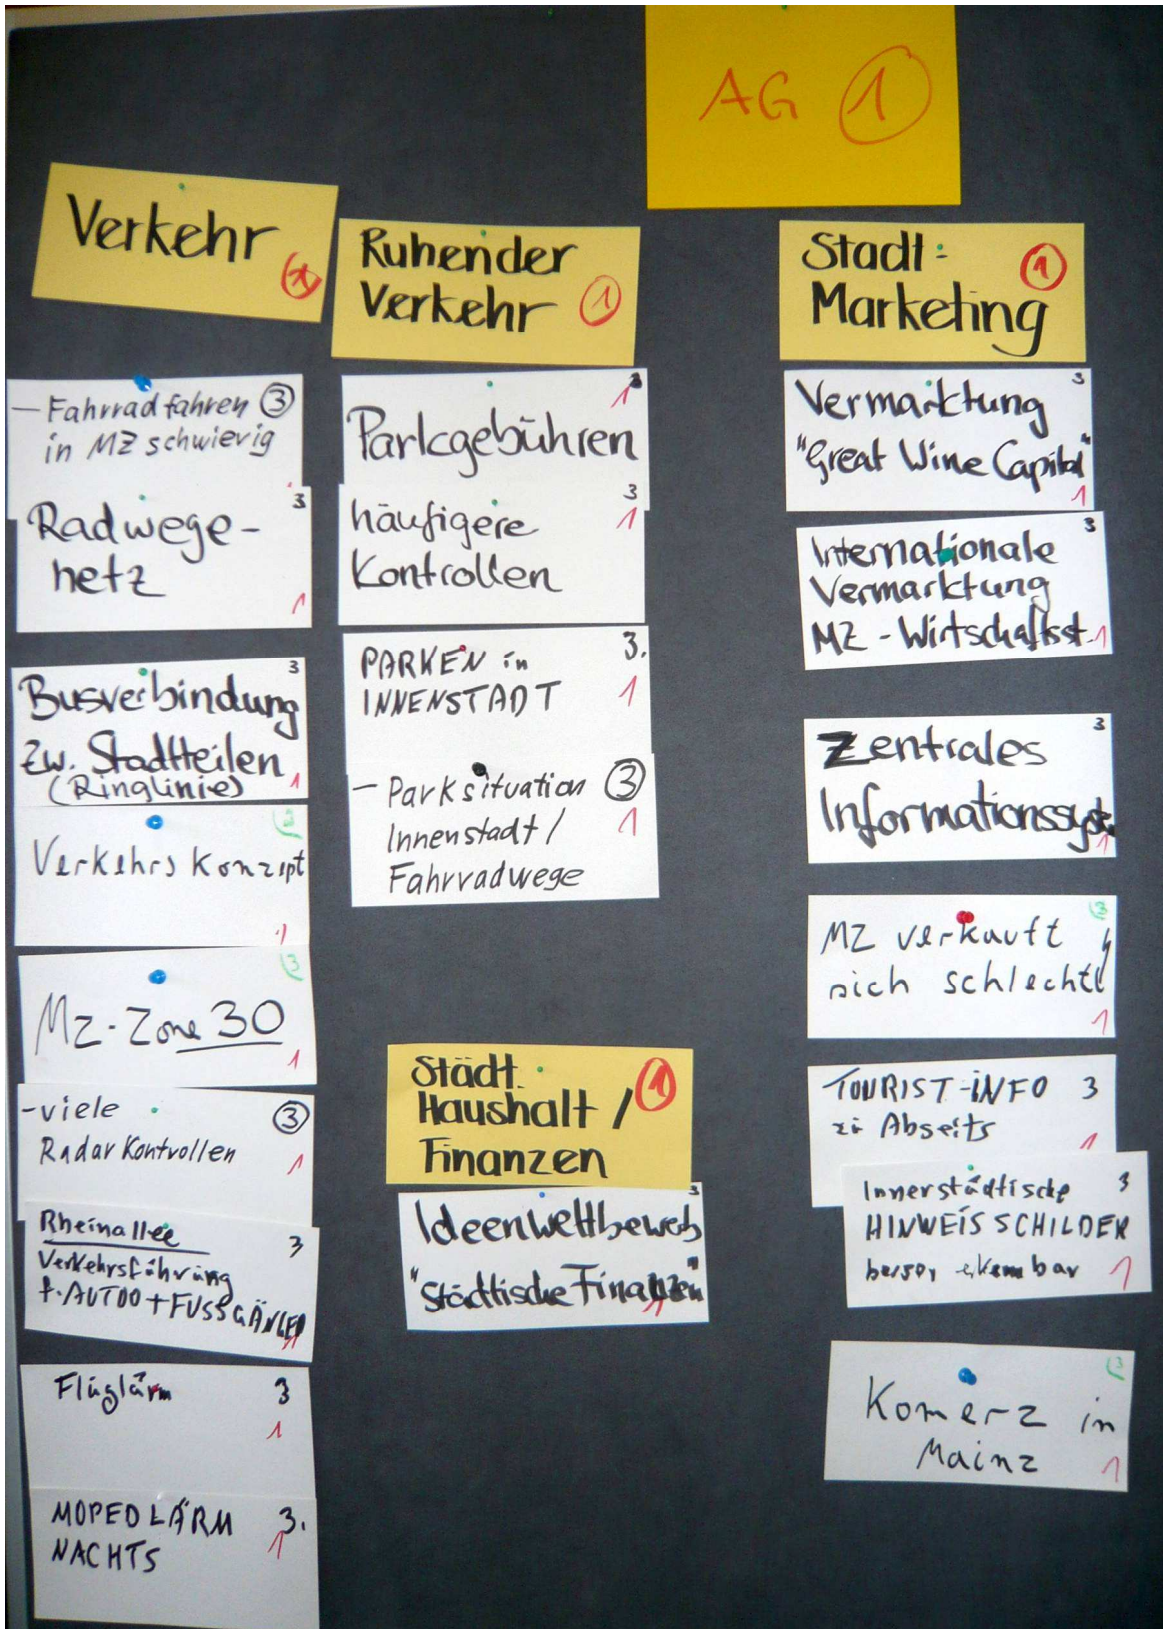 AG 1
Verkehr 1
- Fahrradfahren 3
in MZ schwierig
3
Radwege-
netz
1
3
Busverbindung
zw. Stadtteilen
(Ringlinie) 1
3
Verkehrskonzept
1
3
MZ-Zone 30
1
- viele 3
Radar Kontrollen 1
Rheinallee 3
Verkehrsführung
f. AUTOO + FUSSGÄNGER
1
Fluglärm 3
1
MOPEDLÄRM 3.
NACHTS 1
Ruhender
Verkehr 1
3
1
Parkgebühren
3
häufigere 1
Kontrollen
PARKEN in 3.
INNENSTADT 1
- Parksituation 3
Innenstadt / 1
Fahrradwege
Städt.
Haushalt / 1
Finanzen
3
Ideenwettbewerb
"Städtische Finanzen"
1
Stadt- 1
Marketing
3
Vermarktung
"Great Wine Capital"
1
3
Internationale
Vermarktung
MZ - Wirtschaftsst. 1
3
Zentrales
Informationssyst.
1
3
MZ verkauft
sich schlecht
1
TOURIST-INFO 3
zu Abseits
1
Innerstädtische 3
HINWEISSCHILDER
besser erkennbar 1
3
Komerz in
Mainz 1